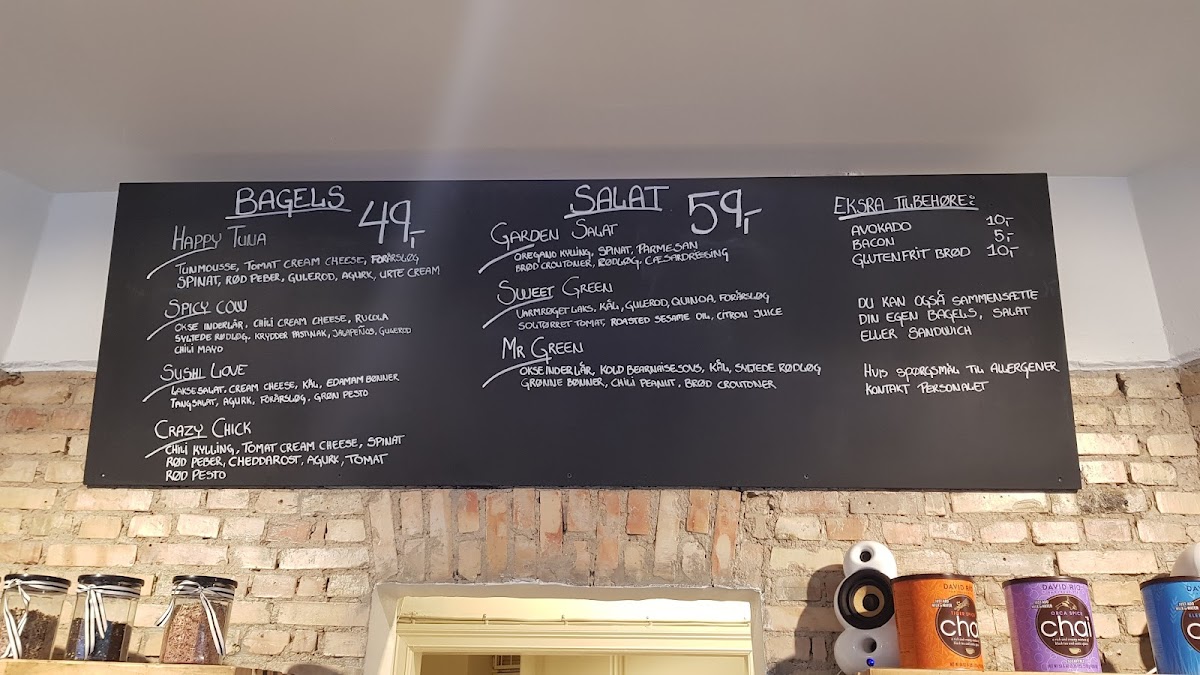 BAGELS 49,-
HAPPY TUNA
TUNMOUSSE, TOMAT CREAM CHEESE, FORÅRSLØG
SPINAT, RØD PEBER, GULEROD, AGURK, URTE CREAM
SPICY COW
OKSE INDERLÅR, CHILI CREAM CHEESE, RUCOLA
SYLTEDE RØDLØG, KRYDDER PASTINAK, JALAPEÑOS, GULEROD
CHILI MAYO
SUSHI LIOVE
LAKSESALAT, CREAM CHEESE, KÅL, EDAMAM BØNNER
TANGSALAT, AGURK, FORÅRSLØG, GRØN PESTO
CRAZY CHICK
CHILI KYLLING, TOMAT CREAM CHEESE, SPINAT
RØD PEBER, CHEDDAROST, AGURK, TOMAT
RØD PESTO
SALAT 59,-
GARDEN SALAT
OREGANO KYLLING, SPINAT, PARMESAN
BRØD CROUTONER, RØDLØG, CÆSARDRESSING
SWEET GREEN
VARMRØGET LAKS, KÅL, GULEROD, QUINOA, FORÅRSLØG
SOLTØRRET TOMAT, ROASTED SESAME OIL, CITRON JUICE
MR GREEN
OKSEINDERLÅR, KOLD BEARNAISESOVS, KÅL, SYLTEDE RØDLØG
GRØNNE BØNNER, CHILI PEANUT, BRØD CROUTONER
EKSRA TILBEHØRE:
AVOKADO 10,-
BACON 5,-
GLUTENFRIT BRØD 10,-
DU KAN OGSÅ SAMMENSÆTTE
DIN EGEN BAGELS, SALAT
ELLER SANDWICH
HVIS SPØRGSMÅL TIL ALLERGENER
KONTAKT PERSONALET
DAVID RIO
TIGER SPICE
chai
DAVID RIO
ORCA SPICE
chai